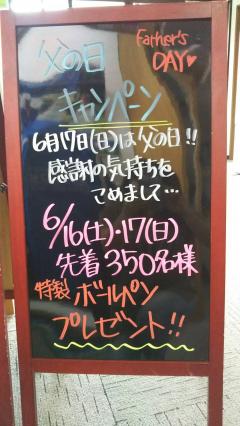 父の日
Father's
DAY♥
キャンペーン
6月17日(日)は父の日!!
感謝の気持ちを
こめまして…
6/16(土)・17(日)
先着350名様
特製 ボールペン
プレゼント!!